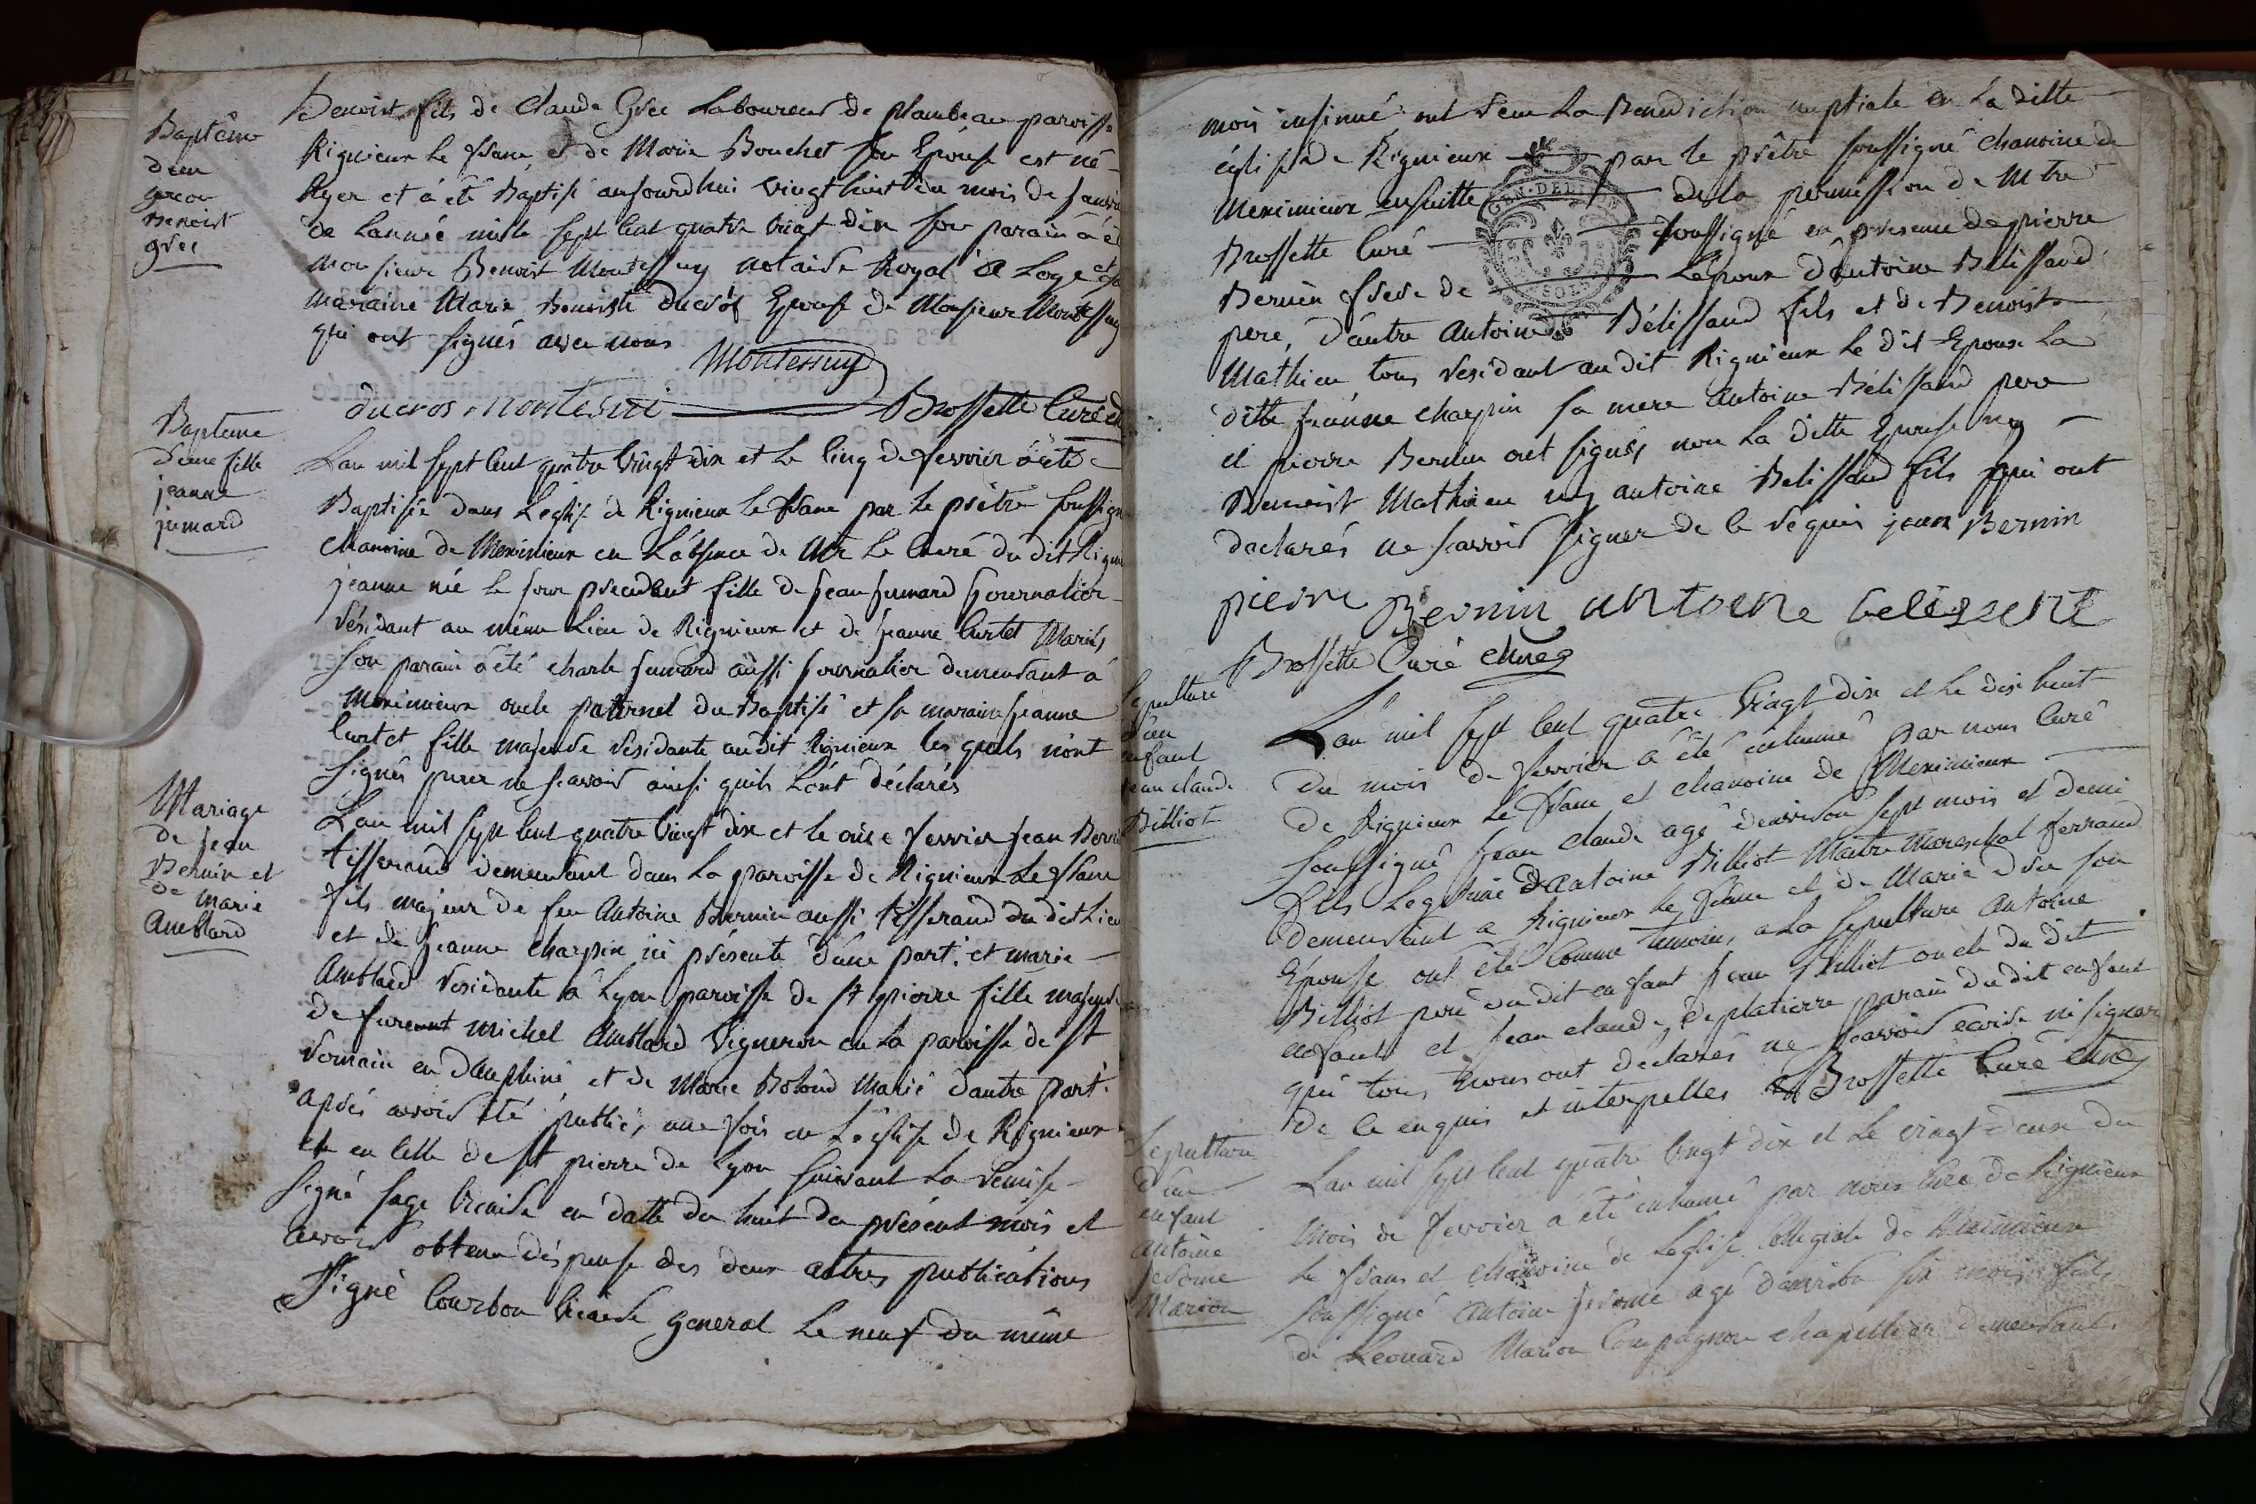 Baptême
d'un
garcon
Benoist
Grec
Benoist fils de Claude Grec Laboureur de plambeau paroisse
Rignieux le franc et de Marie Bouchet son Epouse est né
hyer et à été Baptisé aujourdhui vingt huit du mois de janvier
de Lannée mille sept cent quatre vingt dix son parain à été
monsieur Benoist Montessuy notaire Royal et sa
maraine Marie Benoiste ducros Epouse de Monsieur Montessuy
qui ont signés avec nous
Montessuy
ducros montessui Brossette Curé
Bapteme
d'une fille
jeanne
jumard
Lan mil sept cent quatre vingt dix et le cinq de fevrier à été
Baptisée dans Leglise de Rignieux le franc par le prêtre soussigné
chanoine de Meximieux en L'absence de Mr le Curé du dit Rignieux
jeanne née le jour précedent fille de jean jumard journalier
résidant au même Lieu de Rignieux et de jeanne Curtet Mariés
son parain à été charle jumard aussi journalier demeurant à
Meximieux oncle paternel du Baptisé et sa maraine jeanne
Curtet fille majeure residante audit Rignieux les quels n'ont
signés pour ne scavoir ainsi quils L'ont déclarés
Mariage
de jean
Bernin et
de marie
Amblard
Lan mil sept cent quatre vingt dix et le onze fevrier jean Bernin
tisserand demeurant dans la paroisse de Rignieux Le franc
fils majeur de feu Antoine Bernin aussi tisserand du dit Lieu
et de jeanne charpin ici présente d'une part. et marie
Amblard residante à Lyon paroisse de St pierre fille majeure
de furent michel Amblard Vigneron en la paroisse de St
romain en Dauphiné et de Marie Mariés d'autre part.
aprés avoir été publiés une fois en L'église de Rignieux
et en celle de St pierre de Lyon suivant la remise
signé sage vicaire en datte du huit du présent mois et
avoir obtenu dispense des deux autres publications
signé Courbon vicaire general le neuf du même
mois insinué ont recu La Benediction nuptiale en La ditte
église de Rignieux par le prêtre soussigné chanoine de
Meximieux ensuitte de la permission de Mtre
Brossette Curé soussigné en presence de pierre
Bernin frere de L'époux d'antoine Bélissand
pere, d'autre antoine Bélissand fils et de Benoist
Mathieu tous residant au dit Rignieux le dit Epoux La
ditte jeanne charpin sa mere antoine Bélissand pere
et pierre Bernin ont signés, non La ditte Epouse ny
Benoist Mathieu ny antoine Belissand fils qui ont
declarés ne scavoir signer de ce requis jean Bernin
pierre Bernin antoine belissent
Brossette Curé
Sepulture
d'un
enfant
jean claude
Billiot
L'an mil sept cent quatre vingt dix et le dix huit
du mois de fevrier a été inhumé par nous Curé
de Rignieux le franc et chanoine de Meximieux
soussigné jean claude agé d'environ sept mois et demi
fils Legitime d'Antoine Billiot Maitre Marechal ferrand
demeurant a Rignieux le franc et de Marie son
Epouse ont été comme temoins a la sepulture antoine
Billiot pere du dit enfant jean Billiot oncle du dit
enfant et jean claude deplatierre parain du dit enfant
qui tous nous ont déclarés ne scavoir ecrire ni signer
de ce enquis et interpellés Brossette Curé
Sepulture
d'un
enfant
antoine
jerome
Marion
Lan mil sept cent quatre vingt dix et le vingt deux du
mois de fevrier a été inhumé par nous Curé de Rignieux
le franc et chanoine de Leglise Collegiale de Meximieux
soussigné antoine jerome agé d'environ six mois fils
de Leonard Marion Compagnon chapellier demeurant